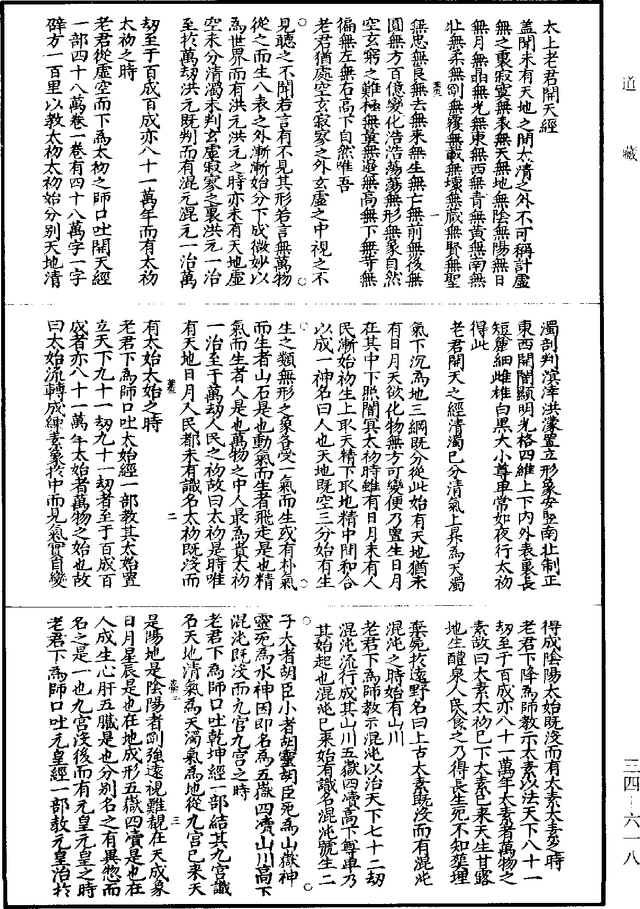 道藏
太上老君開天經
蓋聞未有天地之間太清之外不可稱計虛
無之裏寂寞無表無天無地無陰無陽無日
無月無晶無光無東無西無青無黃無南無
北無柔無剛無覆無載無壞無藏無賢無聖
無忠無良無去無來無生無亡無前無後無
圓無方百億變化浩浩蕩蕩無形無象自然
空玄窮之難極無量無邊無高無下無等無
偏無左無右高下自然唯吾
老君猶處空玄寂寥之外玄虛之中視之不
見聽之不聞若言有不見其形若言無萬物
從之而生八表之外漸漸始分下成微妙以
為世界而有洪元洪元之時亦未有天地虛
空未分清濁未判玄虛寂寥之裏洪元一治
至於萬劫洪元既判而有混元混元一治萬
劫至于百成百成亦八十一萬年而有太初
太初之時
老君從虛空而下為太初之師口吐開天經
一部四十八萬卷一卷有四十八萬字一字
辟方一百里以教太初太初始分別天地清
一
濁剖判溟涬洪濛置立形象安竪南北制正
東西開闇顯明光格四維上下內外表裏長
短麤細雌雄白黑大小尊卑常如夜行太初
得此
老君開天之經清濁已分清氣上昇為天濁
氣下沉為地三綱既分從此始有天地猶未
有日月天欲化物無方可變便乃置生日月
在其中下照闇冥太初時雖有日月未有人
民漸始初生上取天精下取地精中間和合
以成一神名曰人也天地既空三分始有生
生之類無形之象各受一氣而生或有朴氣
而生者山石是也動氣而生者飛走是也精
氣而生者人是也萬物之中人最為貴太初
一治至于萬劫人民之初故曰太初是時唯
有天地日月人民都未有識名太初既沒而
有太始太始之時
老君下為師口吐太始經一部教其太始置
立天下九十一劫九十一劫者至于百成百
成者亦八十一萬年太始者萬物之始也故
曰太始流轉成練素象於中而見氣實自變
二
得成陰陽太始既沒而有太素太素之時
老君下降為師教示太素以法天下八十一
劫至于百成亦八十一萬年太素者萬物之
素故曰太素太初已下太素已來天生甘露
地生醴泉人民食之乃得長生死不知葬埋
棄屍於遠野名曰上古太素既沒而有混沌
混沌之時始有山川
老君下為師教示混沌以治天下七十二劫
混沌流行成其山川五嶽四瀆高下尊卑乃
其始起也混沌已來始有識名混沌號生二
子大者胡臣小者胡靈胡臣死為山嶽神
靈死為水神因即名為五嶽四瀆山川高下
混沌既沒而九宮九宮之時
老君下為師口吐乾坤經一部結其九宮識
名天地清氣為天濁氣為地從九宮已來天
是陽地是陰陽者剛強遠視難覩在天成象
日月星辰是也在地成形五嶽四瀆是也在
人成生心肝五臟是也分別名之有異總而
名之是一也九宮沒後而有元皇元皇之時
老君下為師口吐元皇經一部教元皇治於
三
三四—六一八